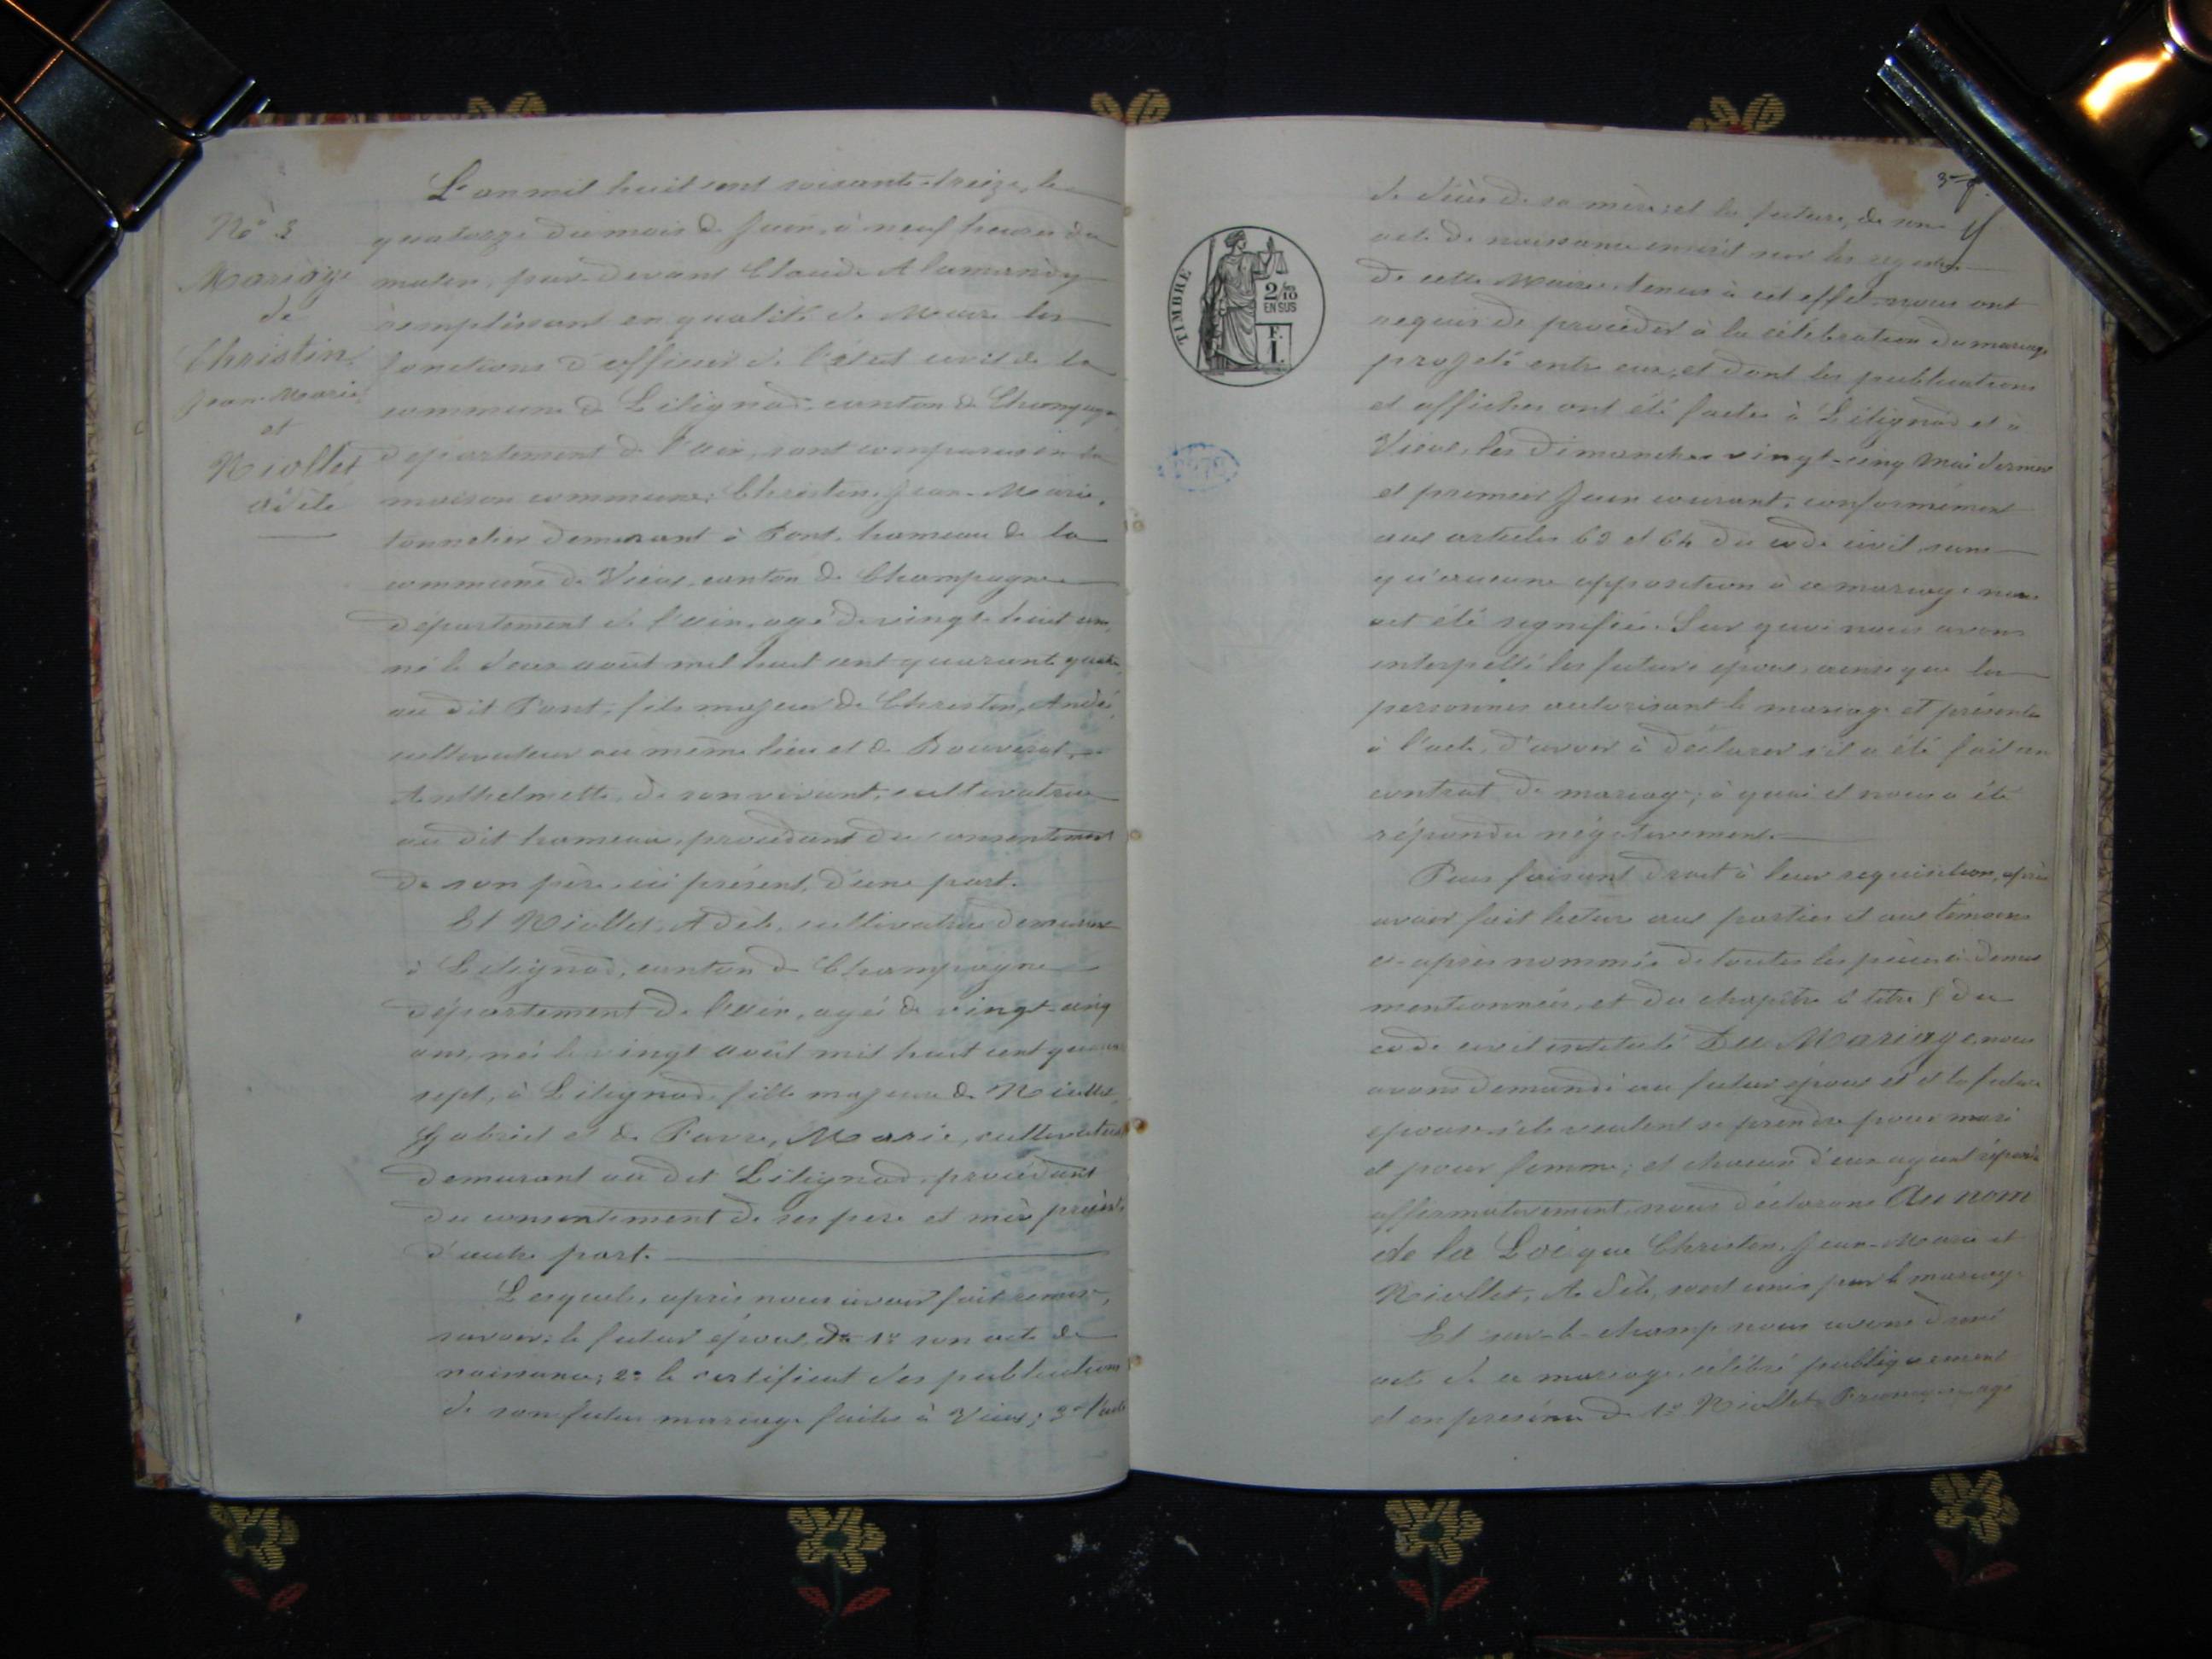 N° 3
Mariage
de
Christin
Jean-Marie
et
Niollet
Adèle
L'an mil huit cent soixante-treize, le
quatorze du mois de Juin, à neuf heures du
matin, par-devant Claude Alumandy
remplissant en qualité de Maire les
fonctions d'officier de l'état civil de la
commune de Lilignod, canton de Champagne,
département de l'Ain, sont comparus en la
maison commune: Christin, Jean-Marie,
tonnelier demeurant à Pont, hameau de la
commune de Vieux, canton de Champagne
département de l'Ain, agé de vingt-huit ans,
né le deux août mil huit cent quarante quatre,
au dit Pont, fils majeur de Christin, André,
cultivateur au même lieu et de Bouverat,
Anthelmette, de son vivant, cultivatrice
au dit hameau, procédant du consentement
de son père ici présent, d'une part.
Et Niollet, Adèle, cultivatrice demeurant
à Lilignod, canton de Champagne
département de l'Ain, agée de vingt-cinq
ans, née le vingt août mil huit cent quarante
sept, à Lilignod, fille majeure de Niollet,
Gabriel et de Favre, Marie, cultivateurs
demeurant au dit Lilignod, procédant
du consentement de ses pere et mère présents
d'autre part.
Lesquels, après nous avoir fait remise,
savoir: le futur époux, de 1° son acte de
naissance; 2° le certificat des publications
de son futur mariage faites à Vieux; 3° l'acte
TIMBRE
2/10
EN SUS
F.
1.
de décès de sa mère; et la future, de son
acte de naissance inscrit sur les registres
de cette Mairie tenus à cet effet, nous ont
requis de procéder à la célébration du mariage
projeté entre eux, et dont les publications
et affiches ont été faites à Lilignod et à
Vieux, les Dimanches vingt-cinq Mai dernier
et premier Juin courant, conformément
aux articles 63 et 64 du code civil, sans
qu'aucune opposition à ce mariage nous
ait été signifiée. Sur quoi nous avons
interpellé les futurs époux, ainsi que les
personnes autorisant le mariage et présentes
à l'acte, d'avoir à déclarer s'il a été fait un
contrat de mariage; à quoi il nous a été
répondu négativement.
Puis faisant droit à leur requisition, après
avoir fait lecture aux parties et aux témoins
ci-après nommés de toutes les pièces ci-dessus
mentionnées, et du chapitre 6 titre 5 du
code civil intitulé Du Mariage, nous
avons demandé au futur époux et à la future
épouse s'ils veulent se prendre pour mari
et pour femme; et chacun d'eux ayant répondu
affirmativement, nous déclarons Au nom
de la Loi que Christin, Jean-Marie et
Niollet, Adèle, sont unis par le mariage.
Et sur-le-champ nous avons dressé
acte de ce mariage, célébré publiquement
et en présence de 1° Niollet agé